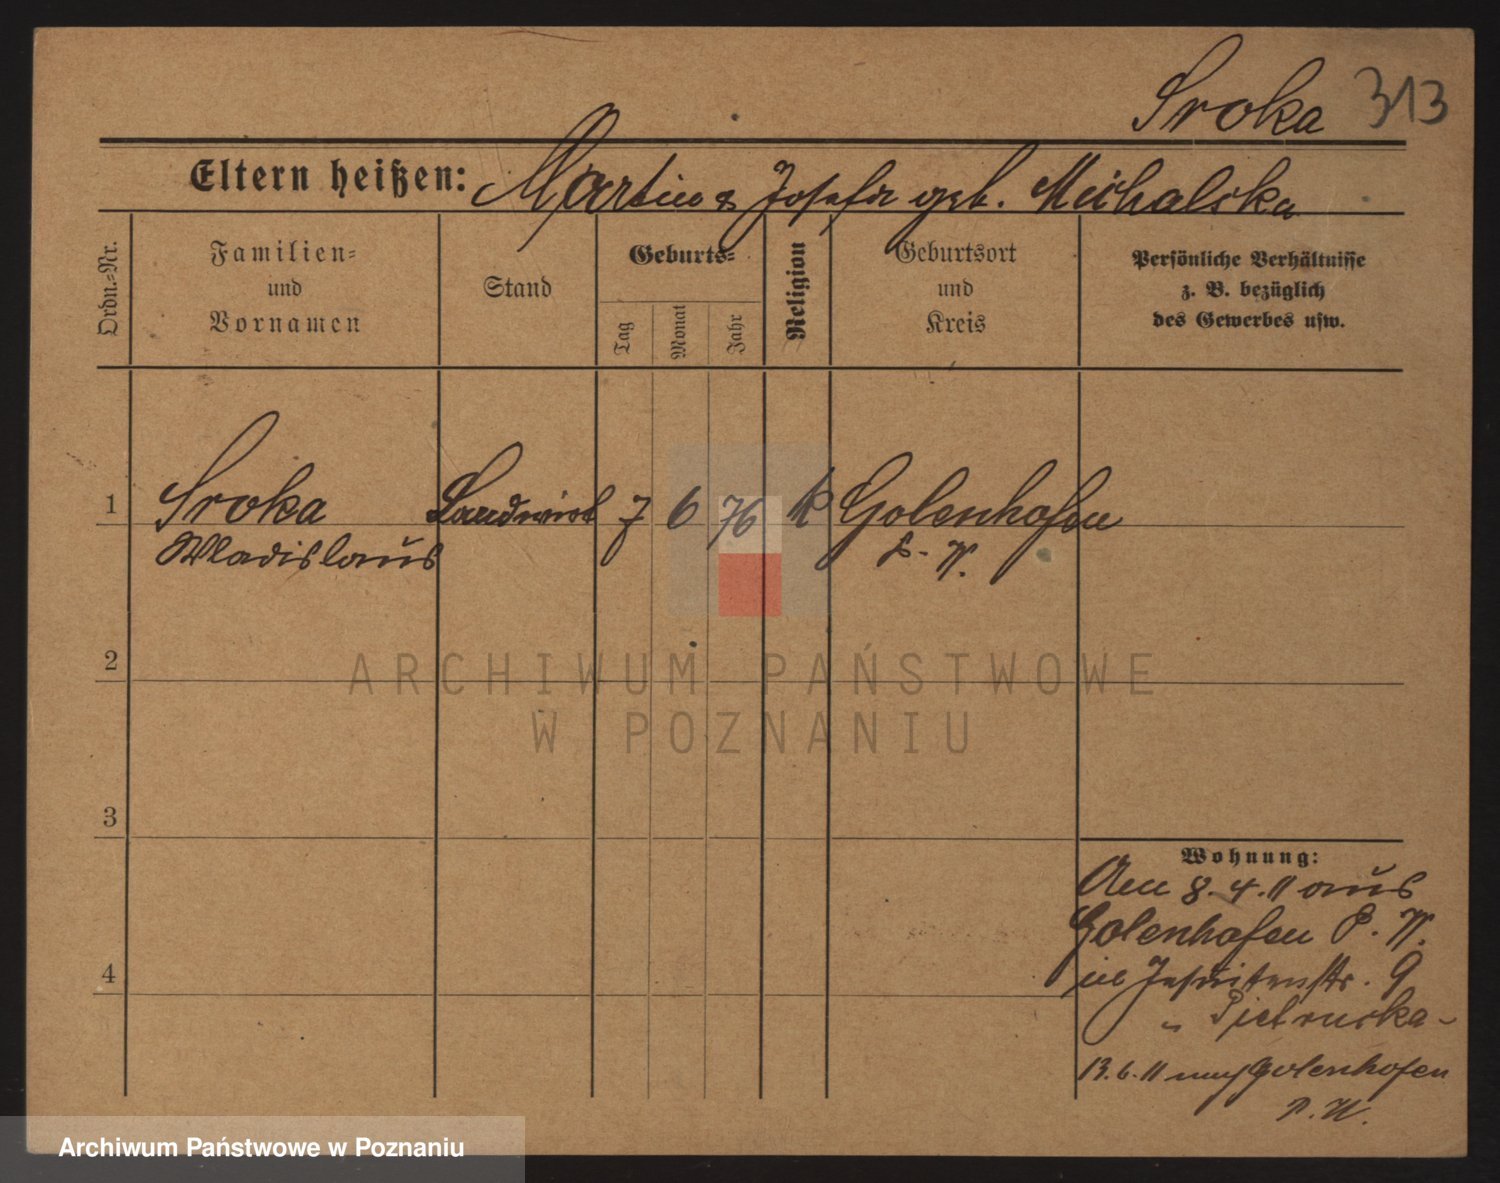 Sroka 313
Eltern heißen: Martin & Josefa geb. Michalska
Ordn.-Nr.
Familien-
und
Vornamen
Stand
Geburts-
Tag
Monat
Jahr
Religion
Geburtsort
und
Kreis
Persönliche Verhältnisse
z. B. bezüglich
des Gewerbes usw.
1 Sroka Landwirt 7 6 76 k Golenhofen
Wladislaus P. W.
2
ARCHIWUM PAŃSTWOWE
W POZNANIU
3
Wohnung:
Am 8.4.11 aus
Golenhofen P. W.
in Jesuitenstr. 9
4
" Pietruska -
13.6.11 nach Golenhofen
P. W.
Archiwum Państwowe w Poznaniu